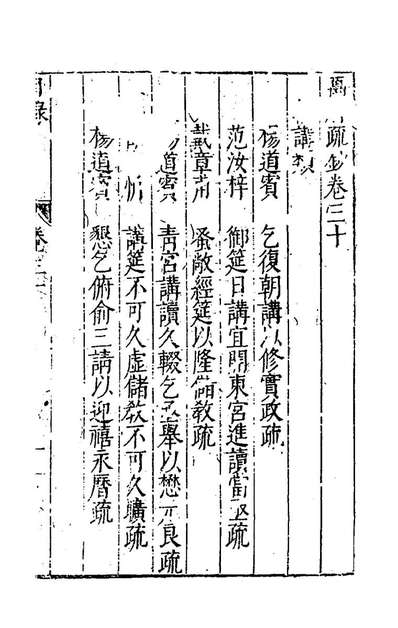 萬 疏鈔卷三十
講
楊道賓 乞復朝講以修實政疏
范汝梓 御筵日講宜開東宮進讀當亟疏
戴章甫 蚤敞經筵以隆儲教疏
道賓 青宮講讀久輟乞亟舉以懋元良疏
講筵不可久虛儲教不可久曠疏
楊道賓 懇乞俯俞三請以迎禧永曆疏
目錄 卷三